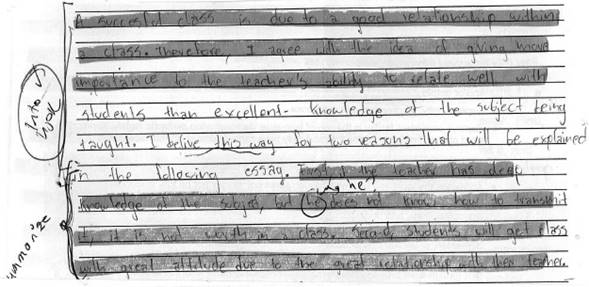 A succesful class is due to a good relationship within
a class. Therefore, I agree with the idea of giving more
importance to the teacher's ability to relate well with
students than excellent knowledge of the subject being
taught. I belive this way for two reasons that will be explained
in the following essay. First, if the teacher has deep
knowledge of the subject, but he does not know how to transmit
it, it is not worth in a class. Second, students will get class
with great attitude due to the great relationship with their teacher.